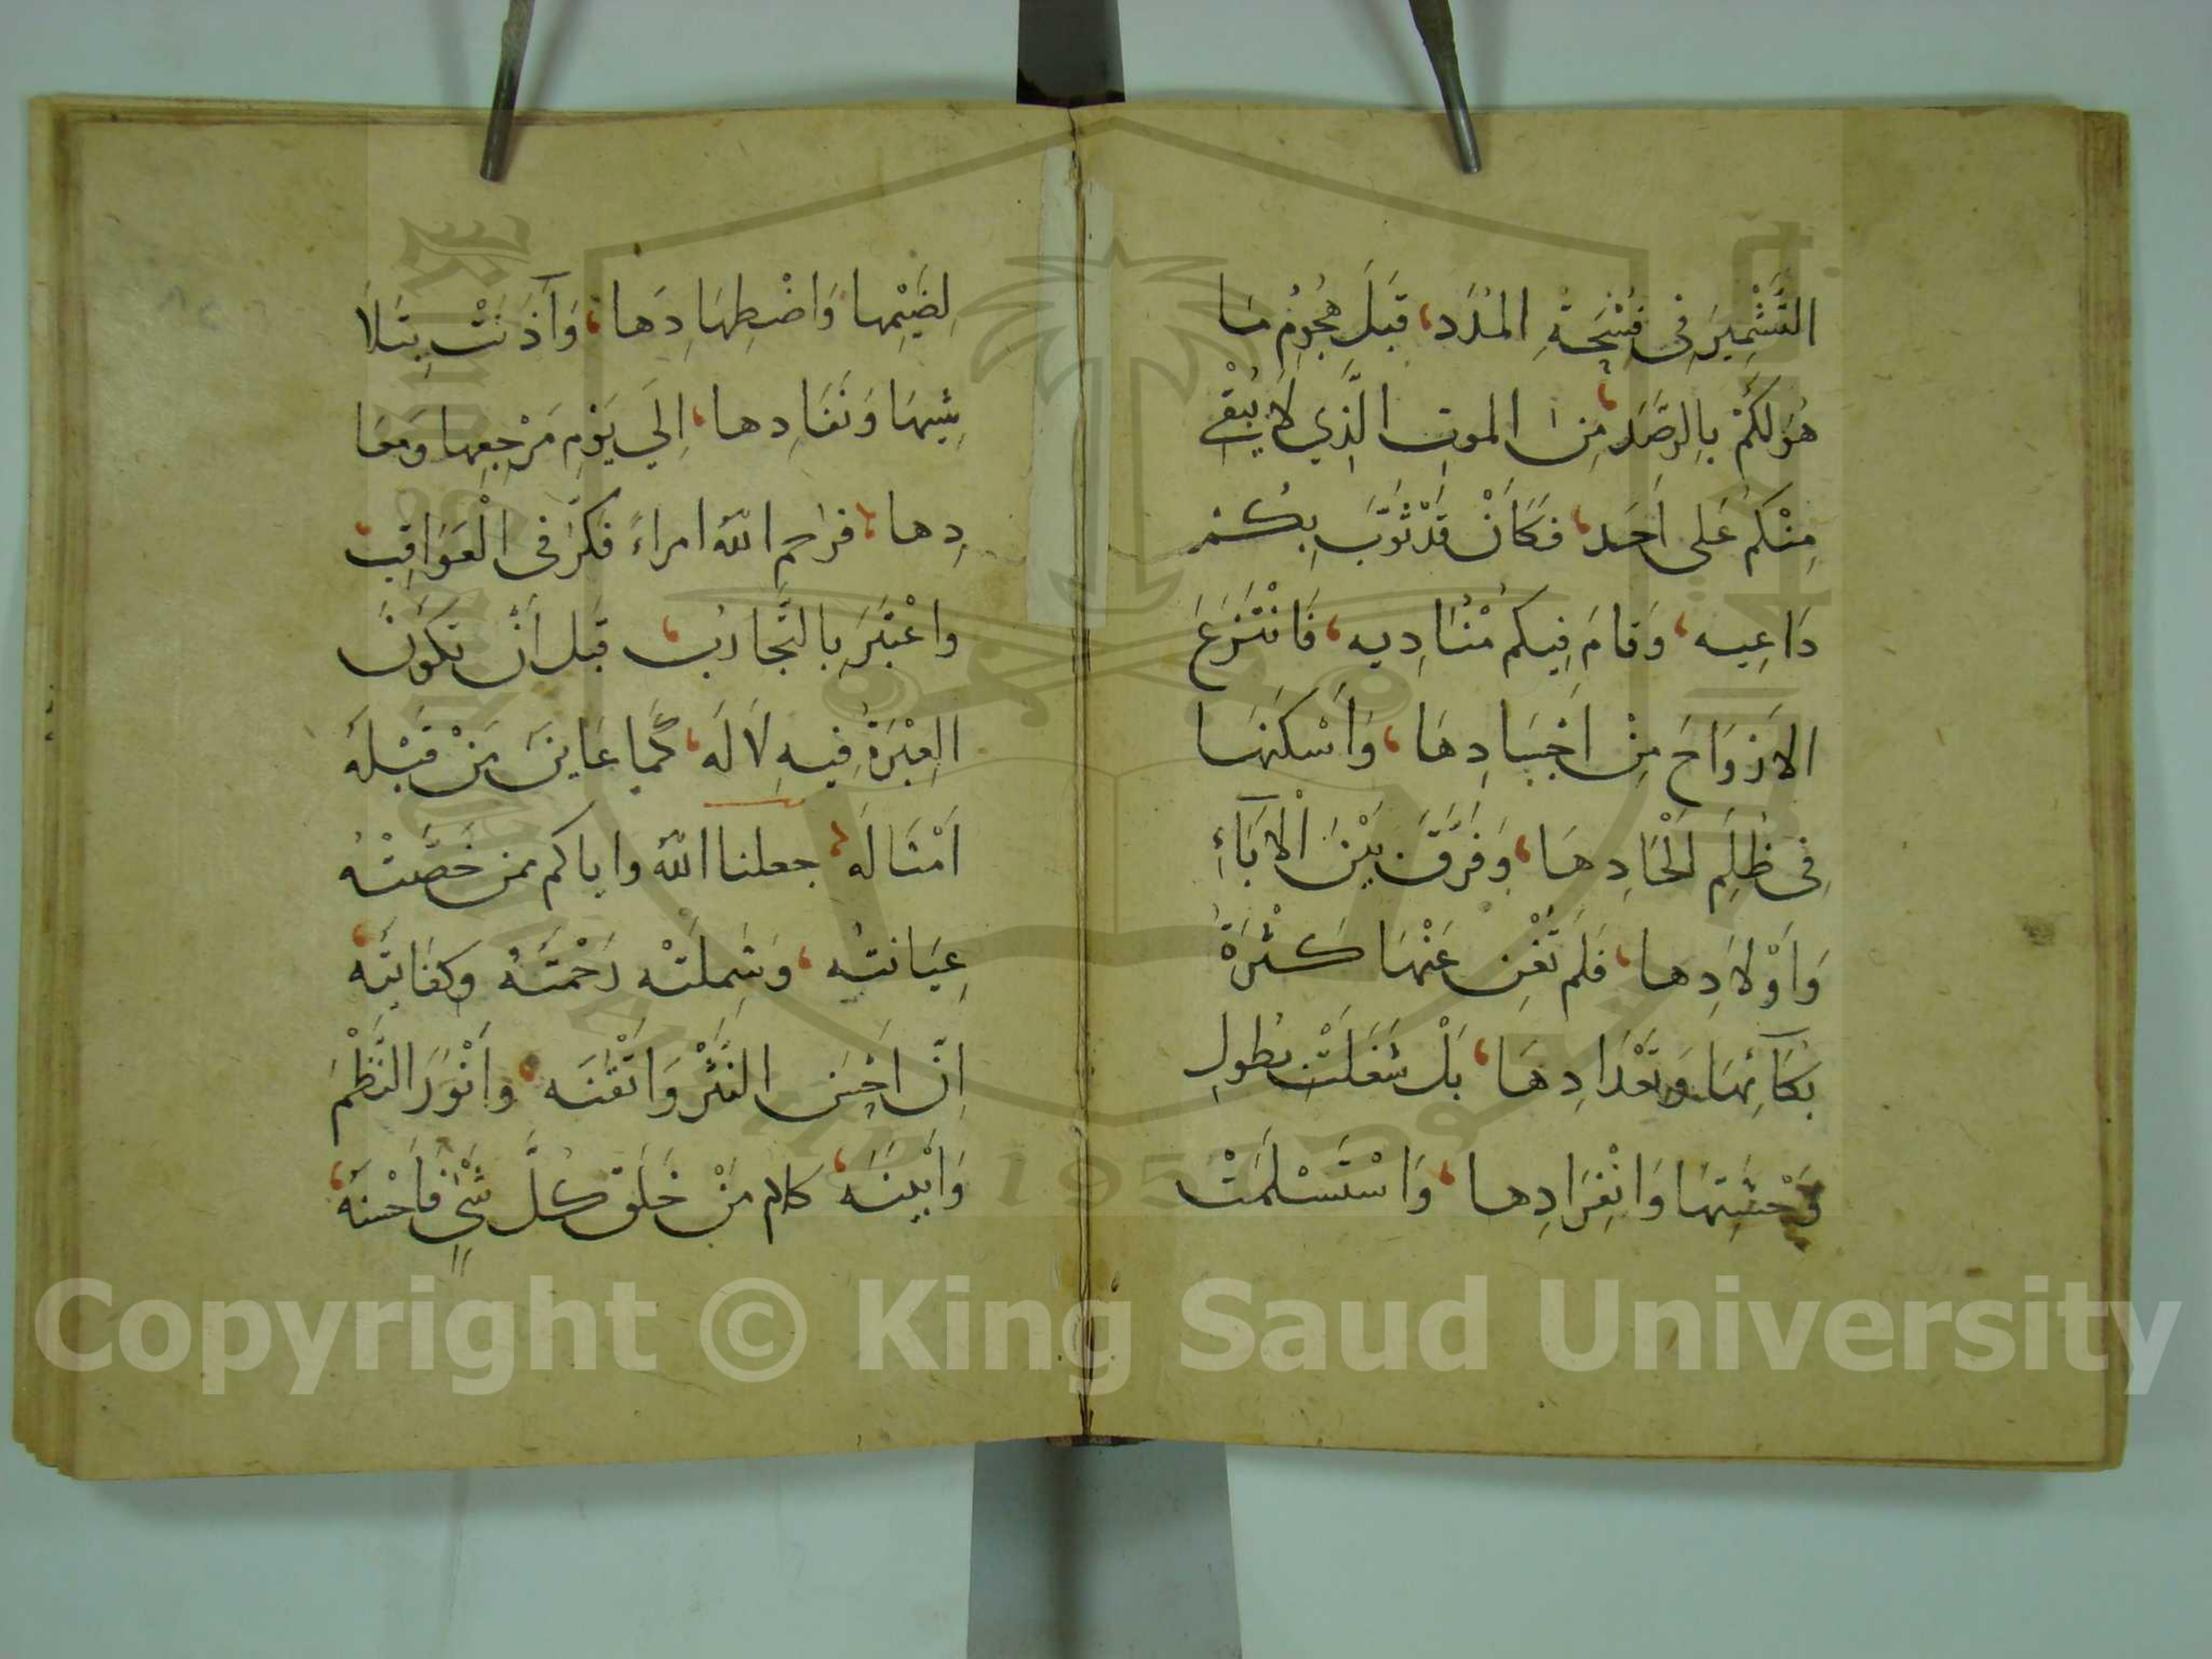 التَّشْمِيَر فِى فُسْحَةِ المُدَد، قَبَلَ هُجُومُ مَا
هُوَ لَكُمْ بِالرَّصَد، مِنَ الموتِ الَّذِي لَا يُبْقِي
مِنْكُم عَلى اَحَد، فَكَأَنْ قَدْ ثَوَّبَ بِكُمْ
دَاعِيه، وَقَامَ فِيكُم مُنَادِيه، فَانْتَزَعَ
الاَرْوَاحَ مِنْ اَجْسَادِهَا، وَأَسْكَنَهَا
فِى ظُلَمِ اَلْحَادِهَا، وَفَرَّقَ بَيْنَ الْآبَآءِ
وَاَوْلَادِهَا، فَلَم تُغْنِ عَنْهَا كَثْرَةُ
بُكَآئِهَا وَتَعْدَادِهَا، بَلْ شُغِلَتْ بُطولِ
وَحْشَتِهَا وَانْفِرَادِها، وَاسْتَسْلَمَتْ
لِضَيْمِها وَاضْطِهَادِهَا، وَآذَنَتْ بِتَلَا
شِيهَا وَنَفَادِها، اِلَي يَوْمِ مَرْجِعِها وَمعَا
دِها، فرحم اللّٰه امراءً فَكَّرَ فى الْعَوَاقِب،
واعْتَبَرَ بِالتَّجَارُب، قَبل اَنْ تَكُونَ
العِبْرَةُ فِيهِ لَا لَه، كَمَا عَايَنَ مَنْ قَبْلَهُ
اَمْثَالَه، جعلنا اللّٰه واياكم ممن خَصَّتْهُ
عِنَايَتُه، وَشَمِلَتْه رَحْمَتُهُ وكفَايَتُه،
اِنَّ اَحْسَنَ النَثْر وَاَتْقَنَه، وَاَنْوَرَ النَّظْمَ
وَاَبْيَنَه، كلام مَنْ خَلَقَ كُلَّ شَىْءٍ فَاَحْسَنَهُ،
Copyright © King Saud University
1957